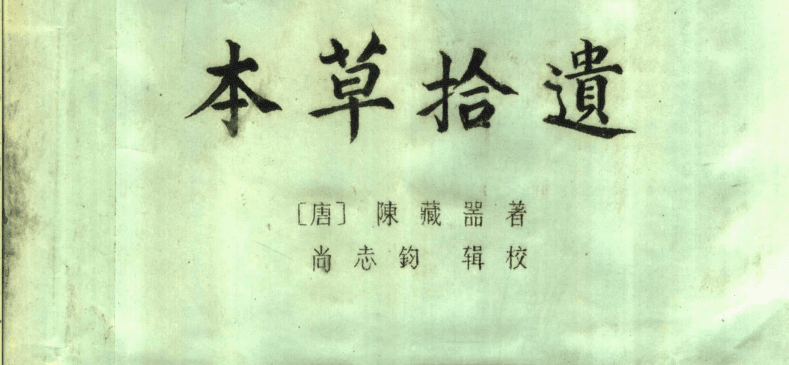 本草拾遺
〔唐〕陳藏器著
尚志鈞 辑校